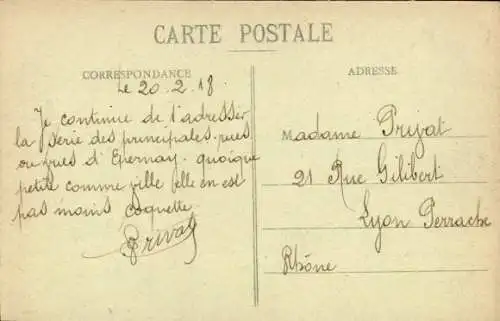 CARTE POSTALE
CORRESPONDANCE
ADRESSE
Le 20.2.18.
Je continue de t'adresser
la serie des principales rues
ou vues d'Epernay. quoique
petite comme ville elle en est
pas moins coquette
Privat
Madame Privat
21 Rue Gilibert
Lyon Perrache
Rhône